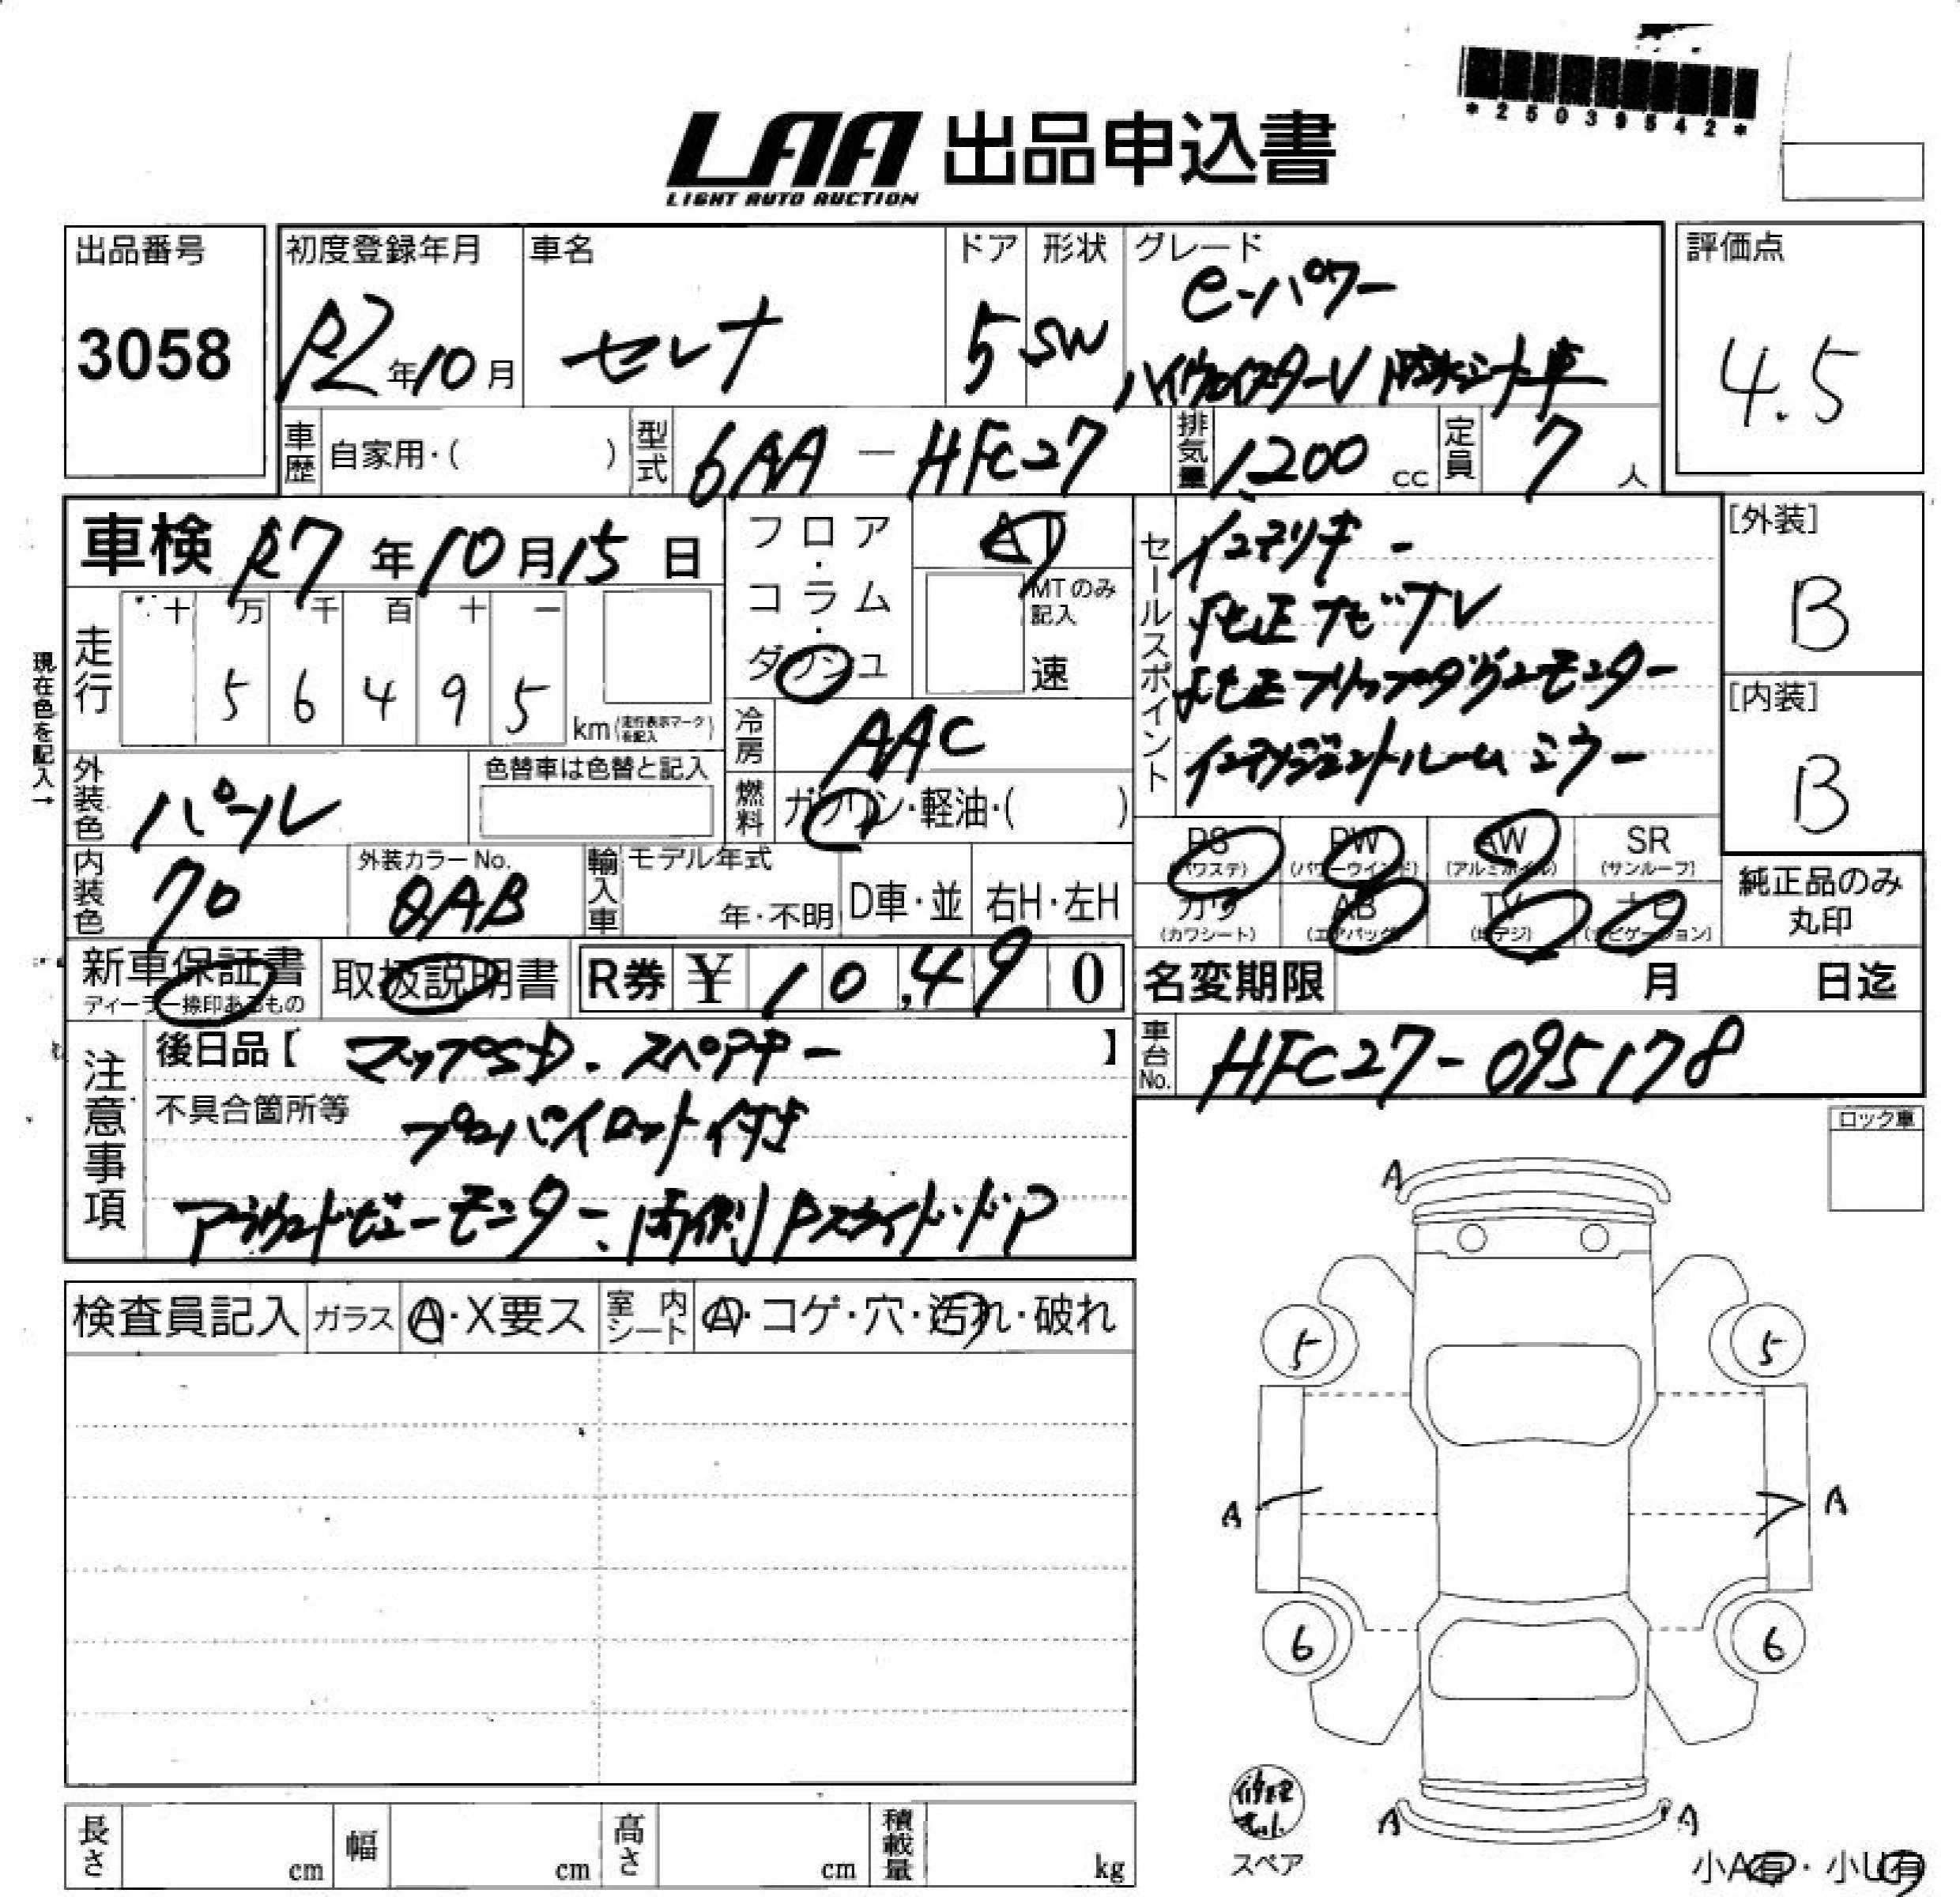 *25039542*
LAA 出品申込書
LIGHT AUTO AUCTION
出品番号
3058
初度登録年月
R2年10月
車名
セレナ
ドア
5
形状
SW
グレード
e-パワー
ハイウェイスターV
評価点
4.5
車歴 自家用・( )
型式 6AA-HFC27
排気量 1,200 cc
定員 7 人
車検 R7年10月15日
フロア・コラム・ダッシュ
AT
MTのみ記入
速
走行
十 万 千 百 十 一
5 6 4 9 5
km(走行表示マークを記入)
現在色を記入→
冷房 AAC
燃料 ガソリン・軽油・( )
外装色 パール
色替車は色替と記入
内装色 クロ
外装カラーNo.
QAB
輸入車
モデル年式
年・不明
D車・並
右H・左H
セールスポイント
インテリキー
純正ナビTV
純正フリップダウンモニター
インテリジェントルームミラー
[外装]
B
[内装]
B
PS (パワステ)
PW (パワーウインド)
AW (アルミホイル)
SR (サンルーフ)
カワ (カワシート)
AB (エアバッグ)
TV (地デジ)
ナビ (ナビゲーション)
純正品のみ丸印
新車保証書
ディーラー捺印あるもの
取扱説明書
R券 ¥ 10,490
名変期限 月 日迄
車台No. HFC27-095178
注意事項
後日品【 マップSD・スペアキー 】
不具合箇所等
プロパイロット付き
アラウンドビューモニター、両側Pスライドドア
ロック車
検査員記入
ガラス A・X要ス
室内シート A・コゲ・穴・汚れ・破れ
A
5 5
A A
6 6
A A
スペア
小A有・小U有
長さ cm
幅 cm
高さ cm
積載量 kg